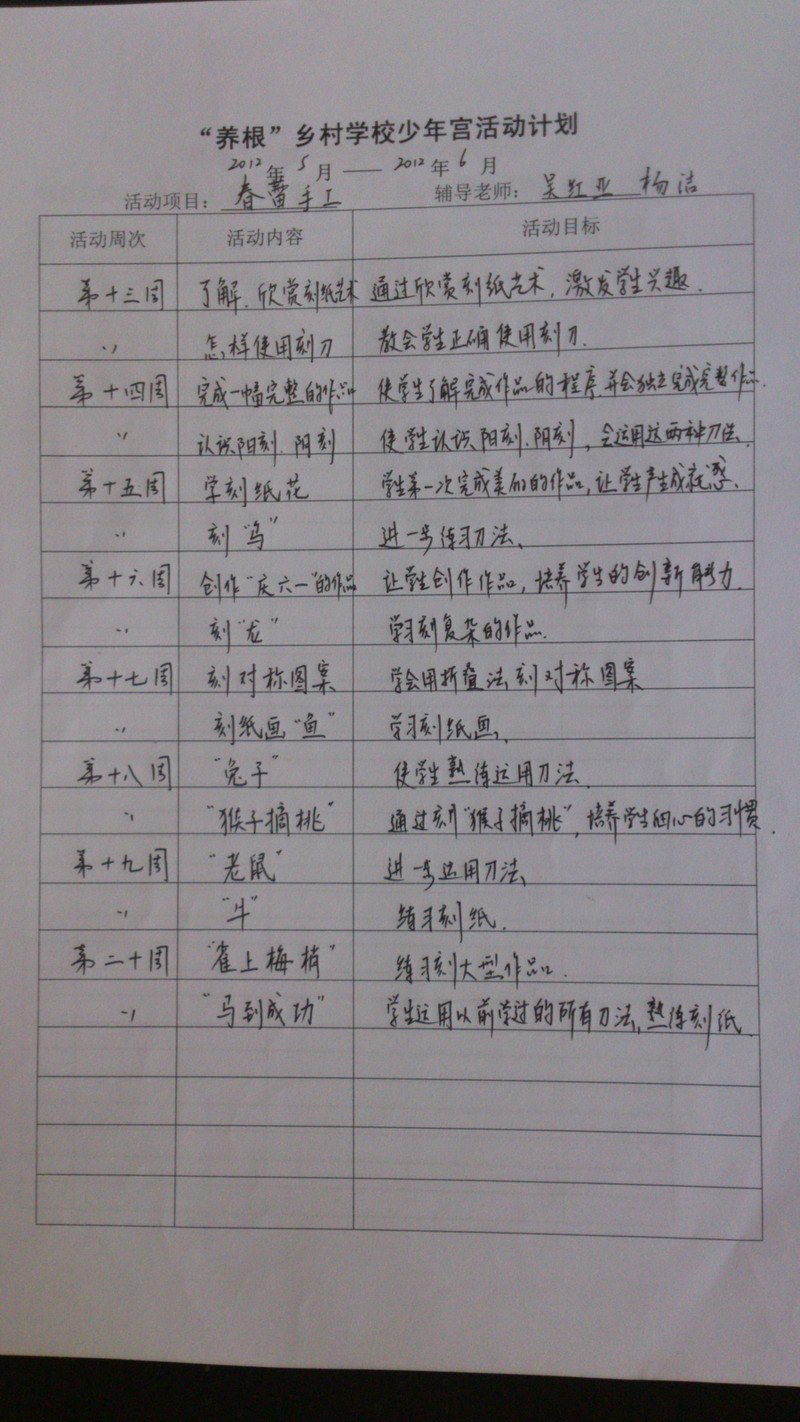 “养根”乡村学校少年宫活动计划
2012年5月——2012年6月
活动项目：春蕾手工 辅导老师：吴红亚 杨洁
活动周次 活动内容 活动目标
第十三周 了解、欣赏刻纸艺术 通过欣赏刻纸艺术，激发学生兴趣.
〃 怎样使用刻刀 教会学生正确使用刻刀.
第十四周 完成一幅完整的作品 使学生了解完成作品的程序并会独立完成完整作品.
〃 认识阳刻.阴刻 使学生认识阳刻.阴刻，会运用这两种刀法.
第十五周 学刻纸花 学生第一次完成美的的作品，让学生产生成就感、
〃 刻“鸟” 进一步练习刀法、
第十六周 创作“庆六一”的作品 让学生创作作品，培养学生的创新能力.
〃 刻“龙” 学习刻复杂的作品.
第十七周 刻对称图案 学会用折叠法刻对称图案
〃 刻纸画“鱼” 学习刻纸画、
第十八周 “兔子” 使学生熟练运用刀法.
〃 “猴子摘桃” 通过刻“猴子摘桃”，培养学生细心的习惯.
第十九周 “老鼠” 进一步运用刀法、
〃 “牛” 练习刻纸.
第二十周 “雀上梅梢” 练习刻大型作品.
〃 “马到成功” 学生运用以前学过的所有刀法，熟练刻纸.